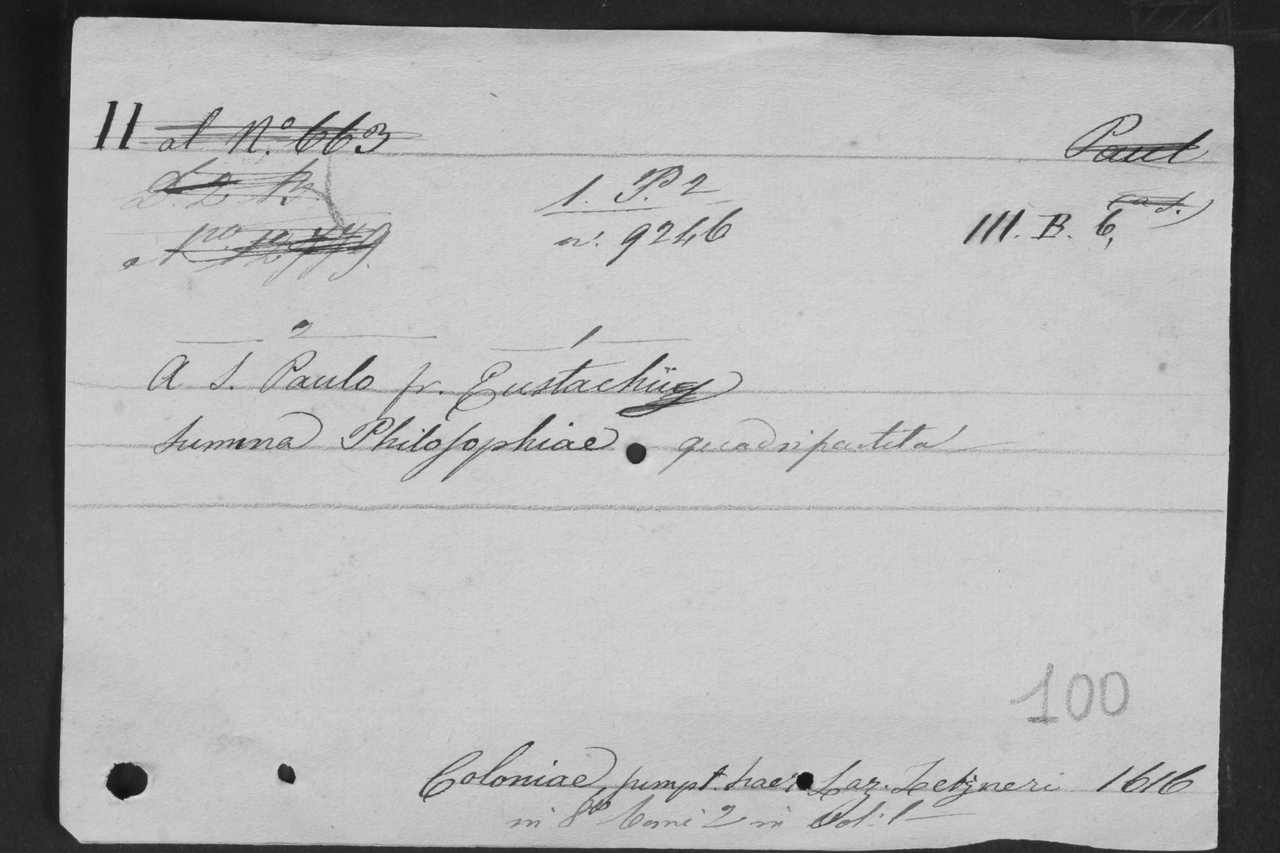 11 al No. 663 Paul
L. 2 B.
1. P. 2
no. 9246 III. B. 6,
2 1
A S. Paulo fr. Eustachiy
summa Philosophiae quadripartita
100
Coloniae, sumpt. haer. Laz. Zetzneri 1616
in 8o tomi 2 in Vol: 1